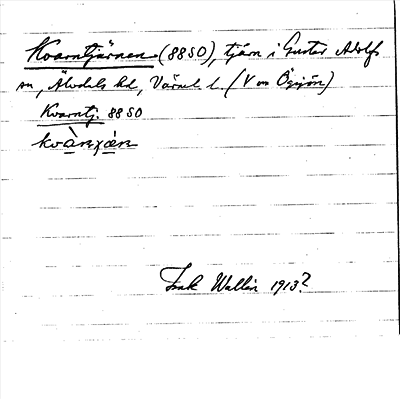 Kvarntjärnen (88 SO), tjärn i Gustav Adolfs
sn, Älvdals hd, Värml. l. (V om Öjsjön)
Kvarntj. 88 SO
kvànχæ̀n
Isak Wallin 1913?